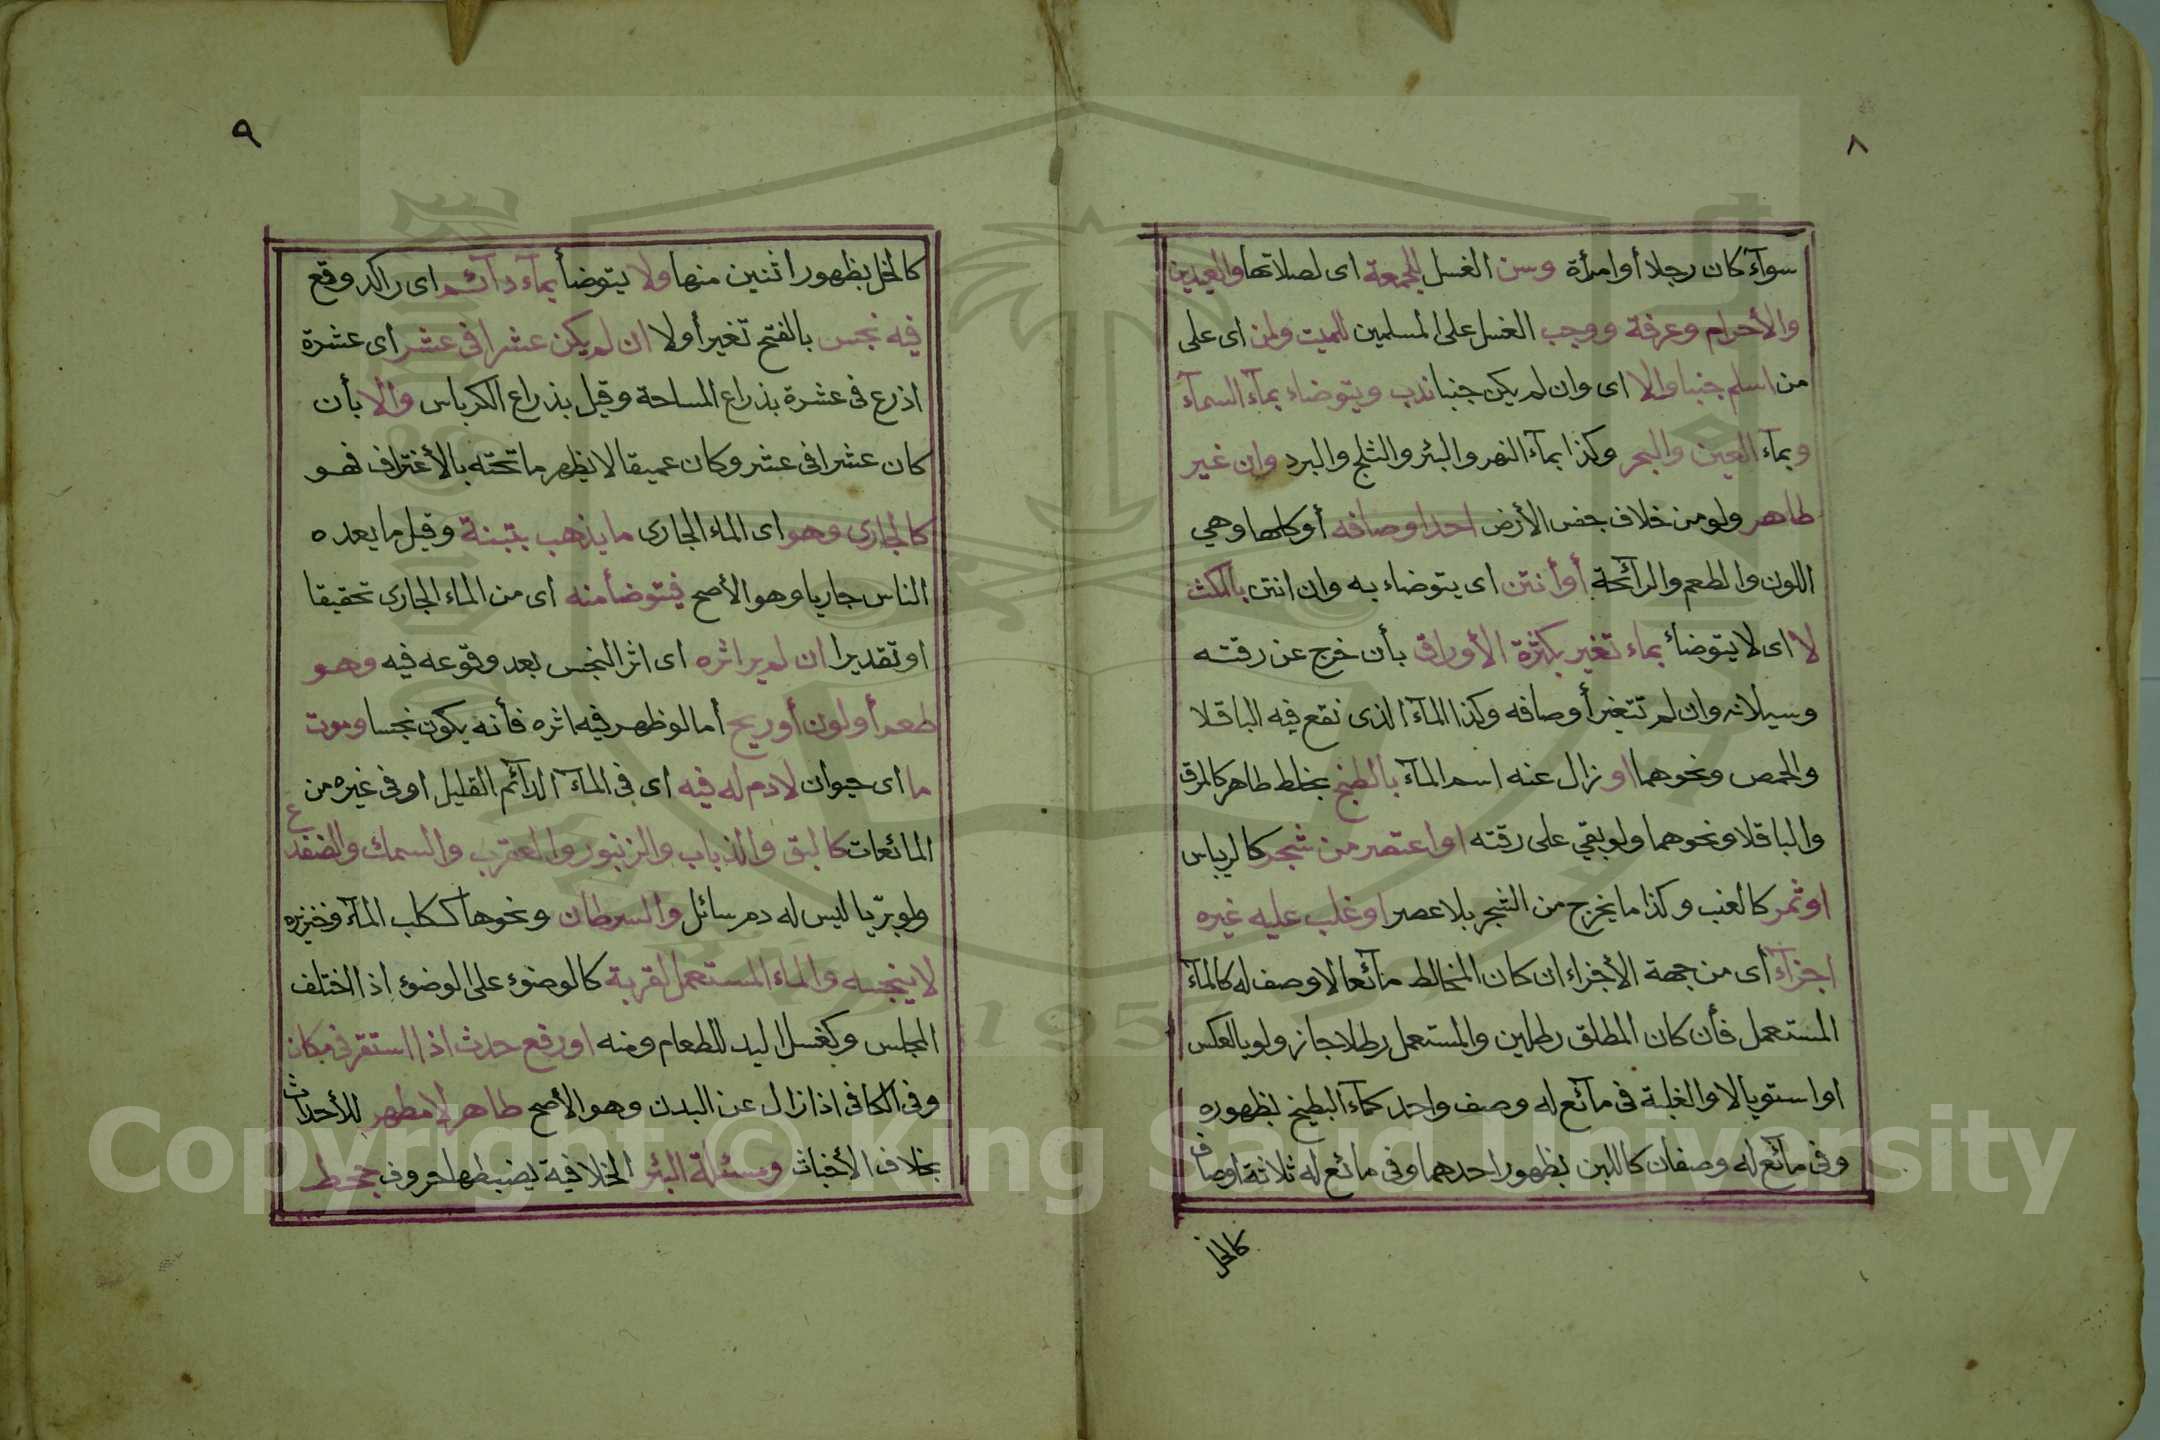 ٨
سوآء كان رجلا أوامرأة وسن الغسل للجمعة اى لصلاتها والعيدين
والأحرام وعرفة ووجب الغسل على المسلمين للميت ولمن اى على
من اسلم جنبا والا اى وان لم يكن جنبا ندب ويتوضاء بمآء السمآء
وبمآء العين والبحر وكذا بمآء النهر والبئر والثلج والبرد وان غير
طاهر ولو من خلاف جنس الأرض احد اوصافه أو كلها وهي
اللون والطعم والرآئحة أو أنتن اى يتوضاء به وان انتن بالمكث
لا اى لا يتوضأ بماء تغير بكثرة الأوراق بأن خرج عن رقته
وسيلانه وان لم تتغير أوصافه وكذا المآء الذى نقع فيه الباقلا
والحمص ونحوهما او زال عنه اسم المآء بالطبخ بخلط طاهر كالمرق
والباقلا ونحوهما ولو بقي على رقته او اعتصر من شجر كالريباس
او ثمر كالعنب وكذا ما يخرج من الشجر بلا عصر او غلب عليه غيره
اجزآء أى من جهة الأجزاء ان كان المخالط مآئعا لا وصف له كالمآء
المستعمل فأن كان المطلق رطلين والمستعمل رطلا جاز ولو بالعكس
او استويا لا والغلبة فى مآئع له وصف واحد كمآء البطيخ بظهوره
وفى مآئع له وصفان كاللبن بظهور احدهما وفى مائع له ثلاثة اوصاف
كالخل
٩
كالخل بظهور اثنين منها ولا يتوضأ بمآء دآئم اى راكد وقع
فيه نجس بالفتح تغير أولا ان لم يكن عشرا فى عشر اى عشرة
اذرع فى عشرة بذراع المساحة وقيل بذراع الكرباس والا بأن
كان عشرا فى عشر وكان عميقا لا يظهر ما تحته بالأغتراف فهو
كالجارى وهو اى الماء الجارى ما يذهب بتبنة وقيل ما يعده
الناس جاريا وهو الأصح فيتوضأ منه اى من الماء الجارى تحقيقا
او تقديرا ان لم ير اثره اى اثر النجس بعد وقوعه فيه وهو
طعم أو لون أو ريح أما لو ظهر فيه اثره فأنه يكون نجسا وموت
ما اى حيوان لا دم له فيه اى فى المآء الدآئم القليل او فى غيره من
المائعات كالبق والذباب والزنبور والعقرب والسمك والضفدع
ولو بريّا ليس له دم سائل والسرطان ونحوها ككلب المآء وخنزيره
لا ينجسه والماء المستعمل لقربة كالوضوء على الوضوء اذا اختلف
المجلس وكغسل اليد للطعام ومنه او رفع حدث اذا استقر فى مكان
وفى الكافى اذا زال عن البدن وهو الأصح طاهر لا مطهر للأحداث
بخلاف الأخباث ومسئلة البئر الخلافية يضبطها حروف جحط
Copyright © King Saud University